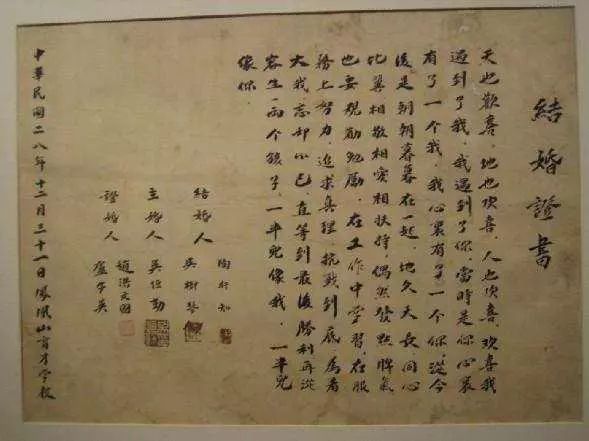 結婚證書
天也歡喜，地也欢喜，人也欢喜，欢喜我
遇到了我，我遇到了你，當時是你心裏
有了一个我，我心裏有了一个你，從今
後是朝朝暮暮在一起，地久天長，同心
比翼相敬相愛相扶持，偶然發點脾氣
也要規勸勉勵，在工作中学習，在服
務上努力，追求真理，抗戰到底，為着
大我忘却小己，直等到最後勝利再從
容生一兩个孩子一半兒像我，一半兒
像你．
結婚人 陶行知
吳樹琴
主婚人 吳
證婚人 趙洪文國
盧子英
中華民國二八年十二月三十一日鳳凰山育才學校